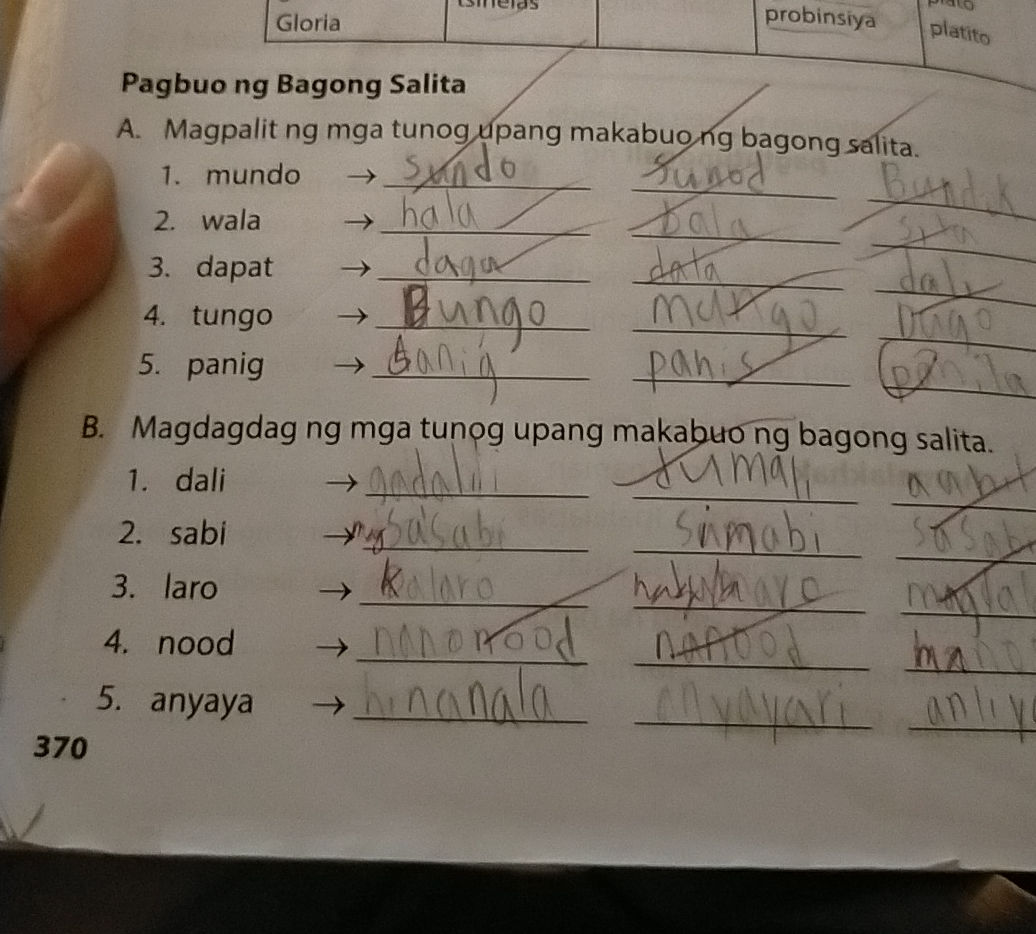 Gloria tsinelas probinsiya platito
Pagbuo ng Bagong Salita
A. Magpalit ng mga tunog upang makabuo ng bagong salita.
1. mundo → sundo sunod Bundok
2. wala → hala bala
3. dapat → daga data dali
4. tungo → Bungo mango Dugo
5. panig → banig panis
B. Magdagdag ng mga tunog upang makabuo ng bagong salita.
1. dali →
2. sabi → sumabi sasabi
3. laro → Kalaro
4. nood → nanonood nanood
5. anyaya → hinanala anyayari
370